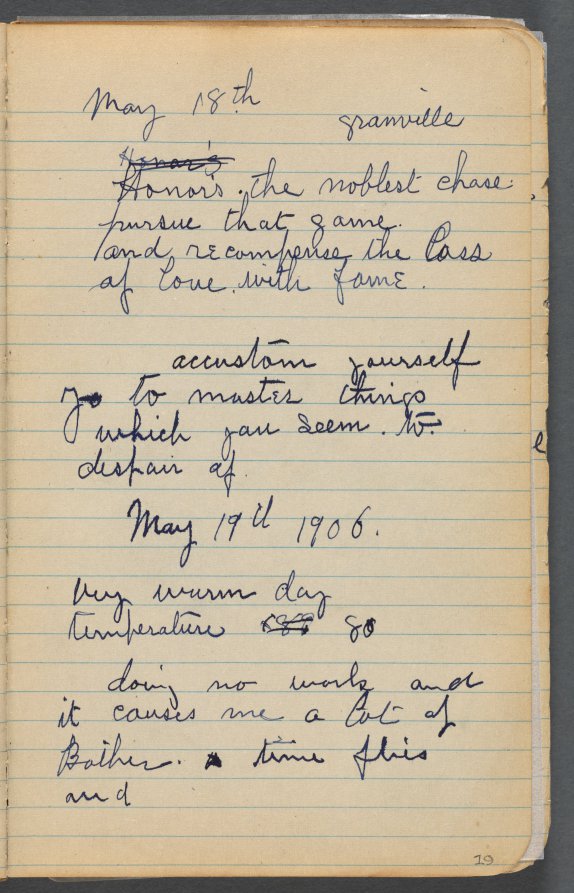 May 18th
granville
Honor's
Honors. the noblest chase
pursue that game.
and recompense the Loss
of Love. with fame.
accustom yourself
to master things
which you seem. to.
despair of
May 19th 1906.
very warm day
temperature 80
doing no work and
it causes me a Lot of
Bother. time flies
and
19